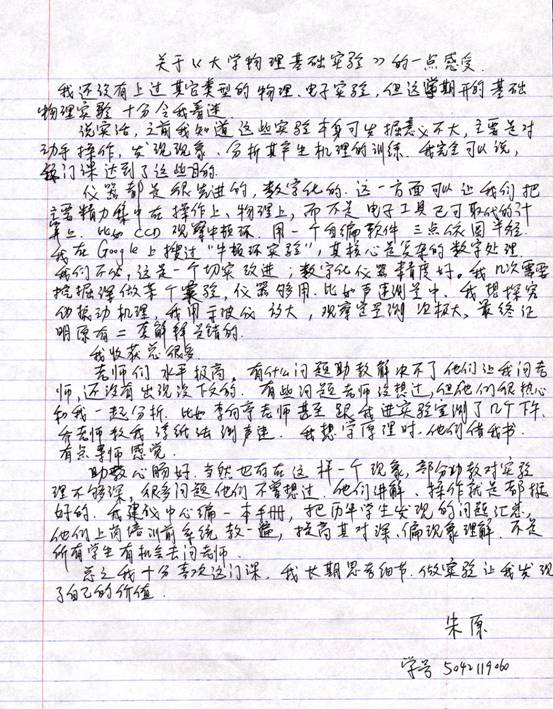 关于《大学物理基础实验》的一点感受
我还没有上过其它类型的物理、电子实验,但这学期开的基础
物理实验十分令我着迷
说实话,之前我知道这些实验本身可发掘意义不大,主要是对
动手操作、发现现象、分析其产生机理的训练。我完全可以说,
这门课达到了这些目的。
仪器都是很先进的,数字化的。这一方面可以让我们把
主要精力集中在操作上、物理上,而不是电子工具已可取代的计
算上。比如CCD观察牛顿环,用一个自编软件三点依圆半径
我在Google上搜过"牛顿环实验",其核心是复杂的数字处理,
我们不必,这是一个切实改进;数字化仪器精度好。我几次需要
挖掘深做某个实验,仪器够用。比如声速测量中,我想探究
的振动机理,我用示波仪放大,观察定是测近极大,最终证
明原有二类解释是错的。
我收获总很多
老师们水平极高,有什么问题助教解决不了他们让我问老
师,还没有出现没下文的。有些问题老师没想过,但他们很热心
和我一起分析。比如李向亭老师甚至跟我进实验室测了几个下午。
乔老师教我 纸法测声速。我想学原理时,他们借我书。
有点导师感觉。
助教心肠好。当然也存在这样一个现象,部分助教对实验
理不够深,很多问题他们不曾想过。他们讲解、操作就是都挺
好的。我建议中心编一本手册,把历年学生发现的问题汇总,
他们上岗培训前系统教一遍,提高其对深、偏现象理解。不是
所有学生有机会去问老师。
总之我十分喜欢这门课。我长期思考细节。做实验让我发现
了自己的价值。
朱原
学号 5042119060